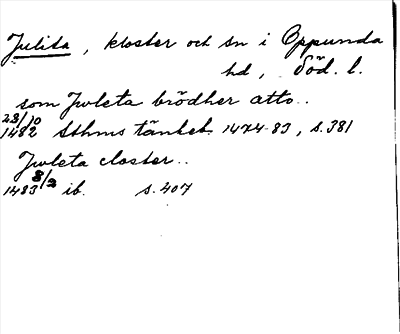 Julita, kloster och sn i Oppunda
hd, Söd. l.
som Jwleta brödher atto..
23/10
1482 Sthms tänkeb. 1474-83, s. 381
Jwleta closter..
8/2
1483 ib. s. 407